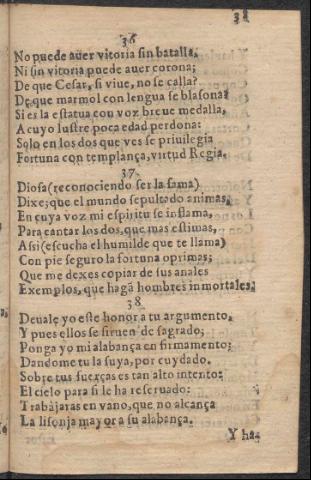 36
No puede auer vitoria sin batalla,
Ni sin vitoria puede auer corona;
De que Cesar, si viue, no se calla?
De que marmol con lengua se blasona?
Si es la estatua con voz breue medalla,
A cuyo lustre poca edad perdona:
Solo en los dos que ves se priuilegia
Fortuna con templança, virtud Regia.
37.
Diosa (reconociendo ser la fama)
Dixe; que el mundo sepultado animas,
En cuya voz mi espiritu se inflama,
Para cantar los dos, que mas estimas,
Assi (escucha el humilde que te llama)
Con pie seguro la fortuna oprimas;
Que me dexes copiar de sus anales
Exemplos, que hagã hombres inmortales.
38.
Deuale yo este honor a tu argumento,
Y pues ellos se siruen de sagrado;
Ponga yo mi alabança en firmamento;
Dandome tu la suya, por cuydado.
Sobre tus fuerças es tan alto intento:
El cielo para si le ha reseruado:
Trabajaras en vano, que no alcança
La lisonja mayor a su alabança.
Y ha-